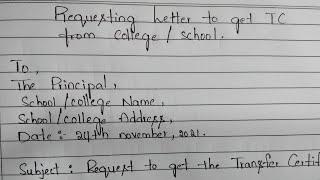 Requesting Letter to get TC
from College / School.
To,
The Principal,
School/college Name,
School/college Address,
Date :- 24th november, 2021.
Subject : Request to get the Transfer Certif